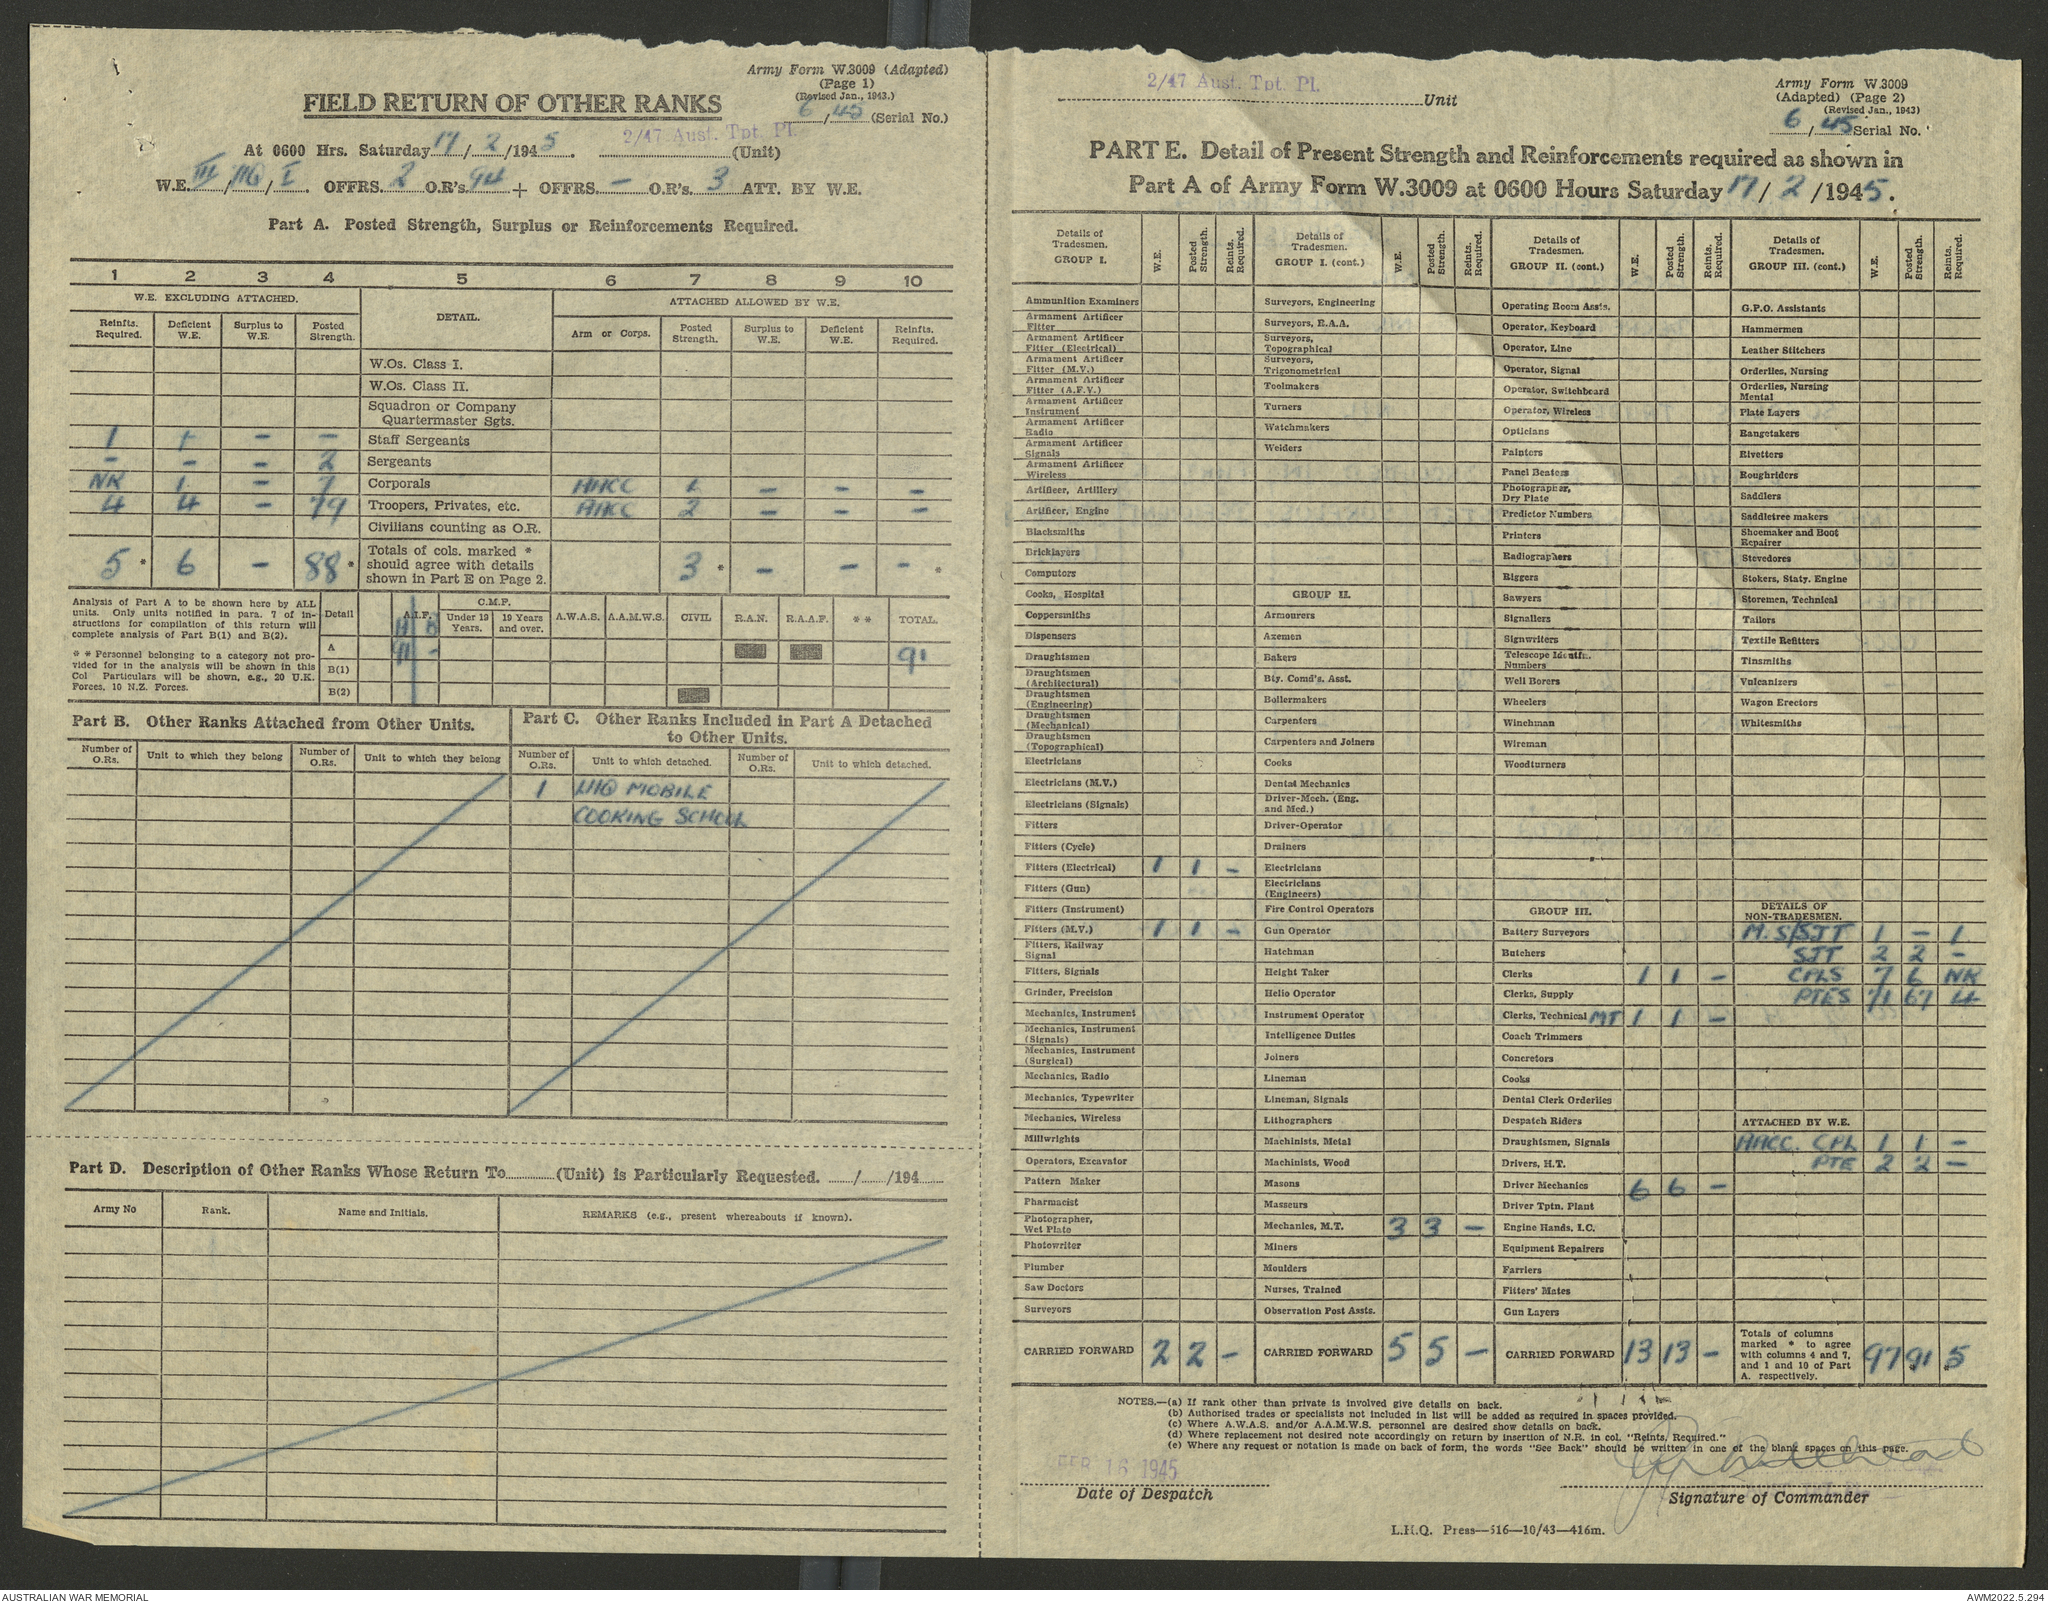 Army Form W.3009 (Adapted)
(Page 1)
(Revised Jan., 1943.)
6/45 (Serial No.)
FIELD RETURN OF OTHER RANKS
At 0600 Hrs. Saturday 17/2/1945. 2/47 Aust. Tpt. Pl. (Unit)
W.E. III/119/I. OFFRS. 2 O.R's. 94 + OFFRS. - O.R's. 3 ATT. BY W.E.
Part A. Posted Strength, Surplus or Reinforcements Required.
1 2 3 4 5 6 7 8 9 10
W.E. EXCLUDING ATTACHED. DETAIL. ATTACHED ALLOWED BY W.E.
Reinfts. Required. Deficient W.E. Surplus to W.E. Posted Strength. Arm or Corps. Posted Strength. Surplus to W.E. Deficient W.E. Reinfts. Required.
W.Os. Class I.
W.Os. Class II.
Squadron or Company
Quartermaster Sgts.
1 1 - - Staff Sergeants
- - - 2 Sergeants
NR 1 - 7 Corporals AACC 1 - - -
4 4 - 79 Troopers, Privates, etc. AACC 2 - - -
Civilians counting as O.R.
5 * 6 - 88 * Totals of cols. marked * should agree with details shown in Part E on Page 2. 3 * - - - *
Analysis of Part A to be shown here by ALL units. Only units notified in para. 7 of instructions for compilation of this return will complete analysis of Part B(1) and B(2).
* * Personnel belonging to a category not provided for in the analysis will be shown in this Col Particulars will be shown, e.g., 20 U.K. Forces, 10 N.Z. Forces.
Detail A.I.F. C.M.F. Under 19 Years. 19 Years and over. A.W.A.S. A.A.M.W.S. CIVIL R.A.N. R.A.A.F. * * TOTAL.
A B
A 91 - 91
B(1)
B(2)
Part B. Other Ranks Attached from Other Units.
Number of O.Rs. Unit to which they belong Number of O.Rs. Unit to which they belong
Part C. Other Ranks Included in Part A Detached
to Other Units.
Number of O.Rs. Unit to which detached. Number of O.Rs. Unit to which detached.
1 LHQ MOBILE
COOKING SCHOOL
Part D. Description of Other Ranks Whose Return To (Unit) is Particularly Requested. / /194
Army No Rank. Name and Initials. REMARKS (e.g., present whereabouts if known).
2/47 Aust. Tpt. Pl. Unit
Army Form W.3009
(Adapted) (Page 2)
(Revised Jan., 1943)
6/45 Serial No.
PART E. Detail of Present Strength and Reinforcements required as shown in
Part A of Army Form W.3009 at 0600 Hours Saturday 17/2/1945.
Details of Tradesmen. GROUP I. W.E. Posted Strength. Reints. Required.
Ammunition Examiners
Armament Artificer Fitter
Armament Artificer Fitter (Electrical)
Armament Artificer Fitter (M.V.)
Armament Artificer Fitter (A.F.V.)
Armament Artificer Instrument
Armament Artificer Radio
Armament Artificer Signals
Armament Artificer Wireless
Artificer, Artillery
Artificer, Engine
Blacksmiths
Bricklayers
Computors
Cooks, Hospital
Coppersmiths
Dispensers
Draughtsmen
Draughtsmen (Architectural)
Draughtsmen (Engineering)
Draughtsmen (Mechanical)
Draughtsmen (Topographical)
Electricians
Electricians (M.V.)
Electricians (Signals)
Fitters
Fitters (Cycle)
Fitters (Electrical) 1 1 -
Fitters (Gun)
Fitters (Instrument)
Fitters (M.V.) 1 1 -
Fitters, Railway Signal
Fitters, Signals
Grinder, Precision
Mechanics, Instrument
Mechanics, Instrument (Signals)
Mechanics, Instrument (Surgical)
Mechanics, Radio
Mechanics, Typewriter
Mechanics, Wireless
Millwrights
Operators, Excavator
Pattern Maker
Pharmacist
Photographer, Wet Plate
Photowriter
Plumber
Saw Doctors
Surveyors
CARRIED FORWARD 2 2 -
Details of Tradesmen. GROUP I. (cont.) W.E. Posted Strength. Reints. Required.
Surveyors, Engineering
Surveyors, R.A.A.
Surveyors, Topographical
Surveyors, Trigonometrical
Toolmakers
Turners
Watchmakers
Welders
GROUP II.
Armourers
Axemen
Bakers
Bty. Comd's. Asst.
Boilermakers
Carpenters
Carpenters and Joiners
Cooks
Dental Mechanics
Driver-Mech. (Eng. and Med.)
Driver-Operator
Drainers
Electricians
Electricians (Engineers)
Fire Control Operators
Gun Operator
Hatchman
Height Taker
Helio Operator
Instrument Operator
Intelligence Duties
Joiners
Lineman
Lineman, Signals
Lithographers
Machinists, Metal
Machinists, Wood
Masons
Masseurs
Mechanics, M.T. 3 3 -
Miners
Moulders
Nurses, Trained
Observation Post Assts.
CARRIED FORWARD 5 5 -
Details of Tradesmen. GROUP II. (cont.) W.E. Posted Strength. Reints. Required.
Operating Room Assts.
Operator, Keyboard
Operator, Line
Operator, Signal
Operator, Switchboard
Operator, Wireless
Opticians
Painters
Panel Beaters
Photographer, Dry Plate
Predictor Numbers
Printers
Radiographers
Riggers
Sawyers
Signallers
Signwriters
Telescope Identfn. Numbers
Well Borers
Wheelers
Winchman
Wireman
Woodturners
GROUP III.
Battery Surveyors
Butchers
Clerks 1 1 -
Clerks, Supply
Clerks, Technical MT 1 1 -
Coach Trimmers
Concretors
Cooks
Dental Clerk Orderlies
Despatch Riders
Draughtsmen, Signals
Drivers, H.T.
Driver Mechanics 6 6 -
Driver Tptn. Plant
Engine Hands, I.C.
Equipment Repairers
Farriers
Fitters' Mates
Gun Layers
CARRIED FORWARD 13 13 -
Details of Tradesmen. GROUP III. (cont.) W.E. Posted Strength. Reints. Required.
G.P.O. Assistants
Hammermen
Leather Stitchers
Orderlies, Nursing
Orderlies, Nursing Mental
Plate Layers
Rangetakers
Rivetters
Roughriders
Saddlers
Saddletree makers
Shoemaker and Boot Repairer
Stevedores
Stokers, Staty. Engine
Storemen, Technical
Tailors
Textile Refitters
Tinsmiths
Vulcanizers
Wagon Erectors
Whitesmiths
DETAILS OF NON-TRADESMEN.
M. S/SJT 1 - 1
SJT 2 2 -
CPLS 7 6 NR
PTES 71 67 4
ATTACHED BY W.E.
AACC. CPL 1 1 -
PTE 2 2 -
Totals of columns marked * to agree with columns 4 and 7, and 1 and 10 of Part A. respectively. 97 91 5
NOTES.—(a) If rank other than private is involved give details on back.
(b) Authorised trades or specialists not included in list will be added as required in spaces provided.
(c) Where A.W.A.S. and/or A.A.M.W.S. personnel are desired show details on back.
(d) Where replacement not desired note accordingly on return by insertion of N.R. in col. "Reints. Required."
(e) Where any request or notation is made on back of form, the words "See Back" should be written in one of the blank spaces on this page.
FEB 16 1945
Date of Despatch
Signature of Commander
L.H.Q. Press—516—10/43—416m.
AUSTRALIAN WAR MEMORIAL
AWM2022.5.294